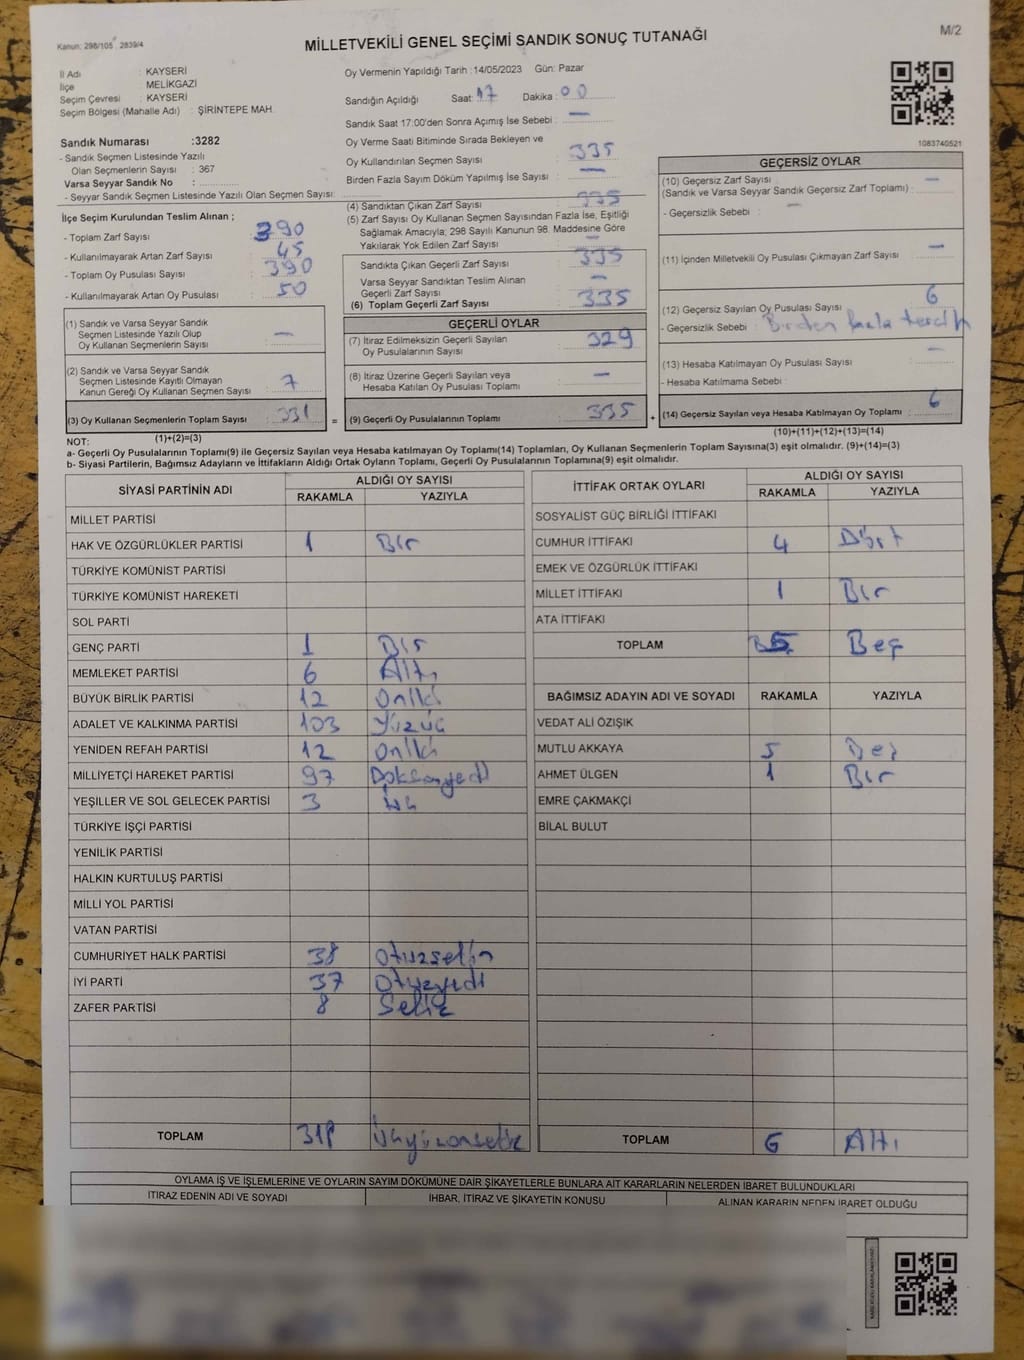 Kanun: 298/105, 2839/4
MİLLETVEKİLİ GENEL SEÇİMİ SANDIK SONUÇ TUTANAĞI
M/2
İl Adı : KAYSERİ
İlçe : MELİKGAZİ
Seçim Çevresi : KAYSERİ
Seçim Bölgesi (Mahalle Adı) : ŞİRİNTEPE MAH.
Sandık Numarası :3282
- Sandık Seçmen Listesinde Yazılı
Olan Seçmenlerin Sayısı : 367
Varsa Seyyar Sandık No :
- Seyyar Sandık Seçmen Listesinde Yazılı Olan Seçmen Sayısı:
İlçe Seçim Kurulundan Teslim Alınan ;
- Toplam Zarf Sayısı : 390
- Kullanılmayarak Artan Zarf Sayısı : 45
- Toplam Oy Pusulası Sayısı : 390
- Kullanılmayarak Artan Oy Pusulası : 50
(1) Sandık ve Varsa Seyyar Sandık
Seçmen Listesinde Yazılı Olup
Oy Kullanan Seçmenlerin Sayısı : —
(2) Sandık ve Varsa Seyyar Sandık
Seçmen Listesinde Kayıtlı Olmayan
Kanun Gereği Oy Kullanan Seçmen Sayısı : 7
(3) Oy Kullanan Seçmenlerin Toplam Sayısı : 331 =
(1)+(2)=(3)
Oy Vermenin Yapıldığı Tarih :14/05/2023 Gün: Pazar
Sandığın Açıldığı Saat: 17 Dakika : 00
Sandık Saat 17:00'den Sonra Açımış İse Sebebi : —
Oy Verme Saati Bitiminde Sırada Bekleyen ve
Oy Kullandırılan Seçmen Sayısı : 335
Birden Fazla Sayım Döküm Yapılmış İse Sayısı : —
(4) Sandıktan Çıkan Zarf Sayısı : 335
(5) Zarf Sayısı Oy Kullanan Seçmen Sayısından Fazla İse, Eşitliği
Sağlamak Amacıyla; 298 Sayılı Kanunun 98. Maddesine Göre
Yakılarak Yok Edilen Zarf Sayısı : —
Sandıkta Çıkan Geçerli Zarf Sayısı : 335
Varsa Seyyar Sandıktan Teslim Alınan
Geçerli Zarf Sayısı : —
(6) Toplam Geçerli Zarf Sayısı : 335
GEÇERLİ OYLAR
(7) İtiraz Edilmeksizin Geçerli Sayılan
Oy Pusulalarının Sayısı : 329
(8) İtiraz Üzerine Geçerli Sayılan veya
Hesaba Katılan Oy Pusulası Toplamı : —
(9) Geçerli Oy Pusulalarının Toplamı : 335 +
1083740521
GEÇERSİZ OYLAR
(10) Geçersiz Zarf Sayısı : —
(Sandık ve Varsa Seyyar Sandık Geçersiz Zarf Toplamı)
- Geçersizlik Sebebi : —
(11) İçinden Milletvekili Oy Pusulası Çıkmayan Zarf Sayısı : —
(12) Geçersiz Sayılan Oy Pusulası Sayısı : 6
- Geçersizlik Sebebi : Birden fazla tercih
(13) Hesaba Katılmayan Oy Pusulası Sayısı : —
- Hesaba Katılmama Sebebi :
(14) Geçersiz Sayılan veya Hesaba Katılmayan Oy Toplamı : 6
(10)+(11)+(12)+(13)=(14)
NOT:
a- Geçerli Oy Pusulalarının Toplamı(9) ile Geçersiz Sayılan veya Hesaba katılmayan Oy Toplamı(14) Toplamları, Oy Kullanan Seçmenlerin Toplam Sayısına(3) eşit olmalıdır. (9)+(14)=(3)
b- Siyasi Partilerin, Bağımsız Adayların ve İttifakların Aldığı Ortak Oyların Toplamı, Geçerli Oy Pusulalarının Toplamına(9) eşit olmalıdır.
SİYASİ PARTİNİN ADI ALDIĞI OY SAYISI
RAKAMLA YAZIYLA
MİLLET PARTİSİ
HAK VE ÖZGÜRLÜKLER PARTİSİ 1 Bir
TÜRKİYE KOMÜNİST PARTİSİ
TÜRKİYE KOMÜNİST HAREKETİ
SOL PARTİ
GENÇ PARTİ 1 Bir
MEMLEKET PARTİSİ 6 Altı
BÜYÜK BİRLİK PARTİSİ 12 Oniki
ADALET VE KALKINMA PARTİSİ 103 Yüzüç
YENİDEN REFAH PARTİSİ 12 Oniki
MİLLİYETÇİ HAREKET PARTİSİ 97 Doksanyedi
YEŞİLLER VE SOL GELECEK PARTİSİ 3
TÜRKİYE İŞÇİ PARTİSİ
YENİLİK PARTİSİ
HALKIN KURTULUŞ PARTİSİ
MİLLİ YOL PARTİSİ
VATAN PARTİSİ
CUMHURİYET HALK PARTİSİ 38
İYİ PARTİ 37 Otuzyedi
ZAFER PARTİSİ 8 Sekiz
TOPLAM 318
İTTİFAK ORTAK OYLARI ALDIĞI OY SAYISI
RAKAMLA YAZIYLA
SOSYALİST GÜÇ BİRLİĞİ İTTİFAKI
CUMHUR İTTİFAKI 4 Dört
EMEK VE ÖZGÜRLÜK İTTİFAKI
MİLLET İTTİFAKI 1 Bir
ATA İTTİFAKI
TOPLAM 5 Beş
BAĞIMSIZ ADAYIN ADI VE SOYADI RAKAMLA YAZIYLA
VEDAT ALİ ÖZIŞIK
MUTLU AKKAYA 5 Beş
AHMET ÜLGEN 1 Bir
EMRE ÇAKMAKÇİ
BİLAL BULUT
TOPLAM 6 Altı
OYLAMA İŞ VE İŞLEMLERİNE VE OYLARIN SAYIM DÖKÜMÜNE DAİR ŞİKAYETLERLE BUNLARA AİT KARARLARIN NELERDEN İBARET BULUNDUKLARI
İTİRAZ EDENİN ADI VE SOYADI İHBAR, İTİRAZ VE ŞİKAYETİN KONUSU ALINAN KARARIN NEDEN İBARET OLDUĞU